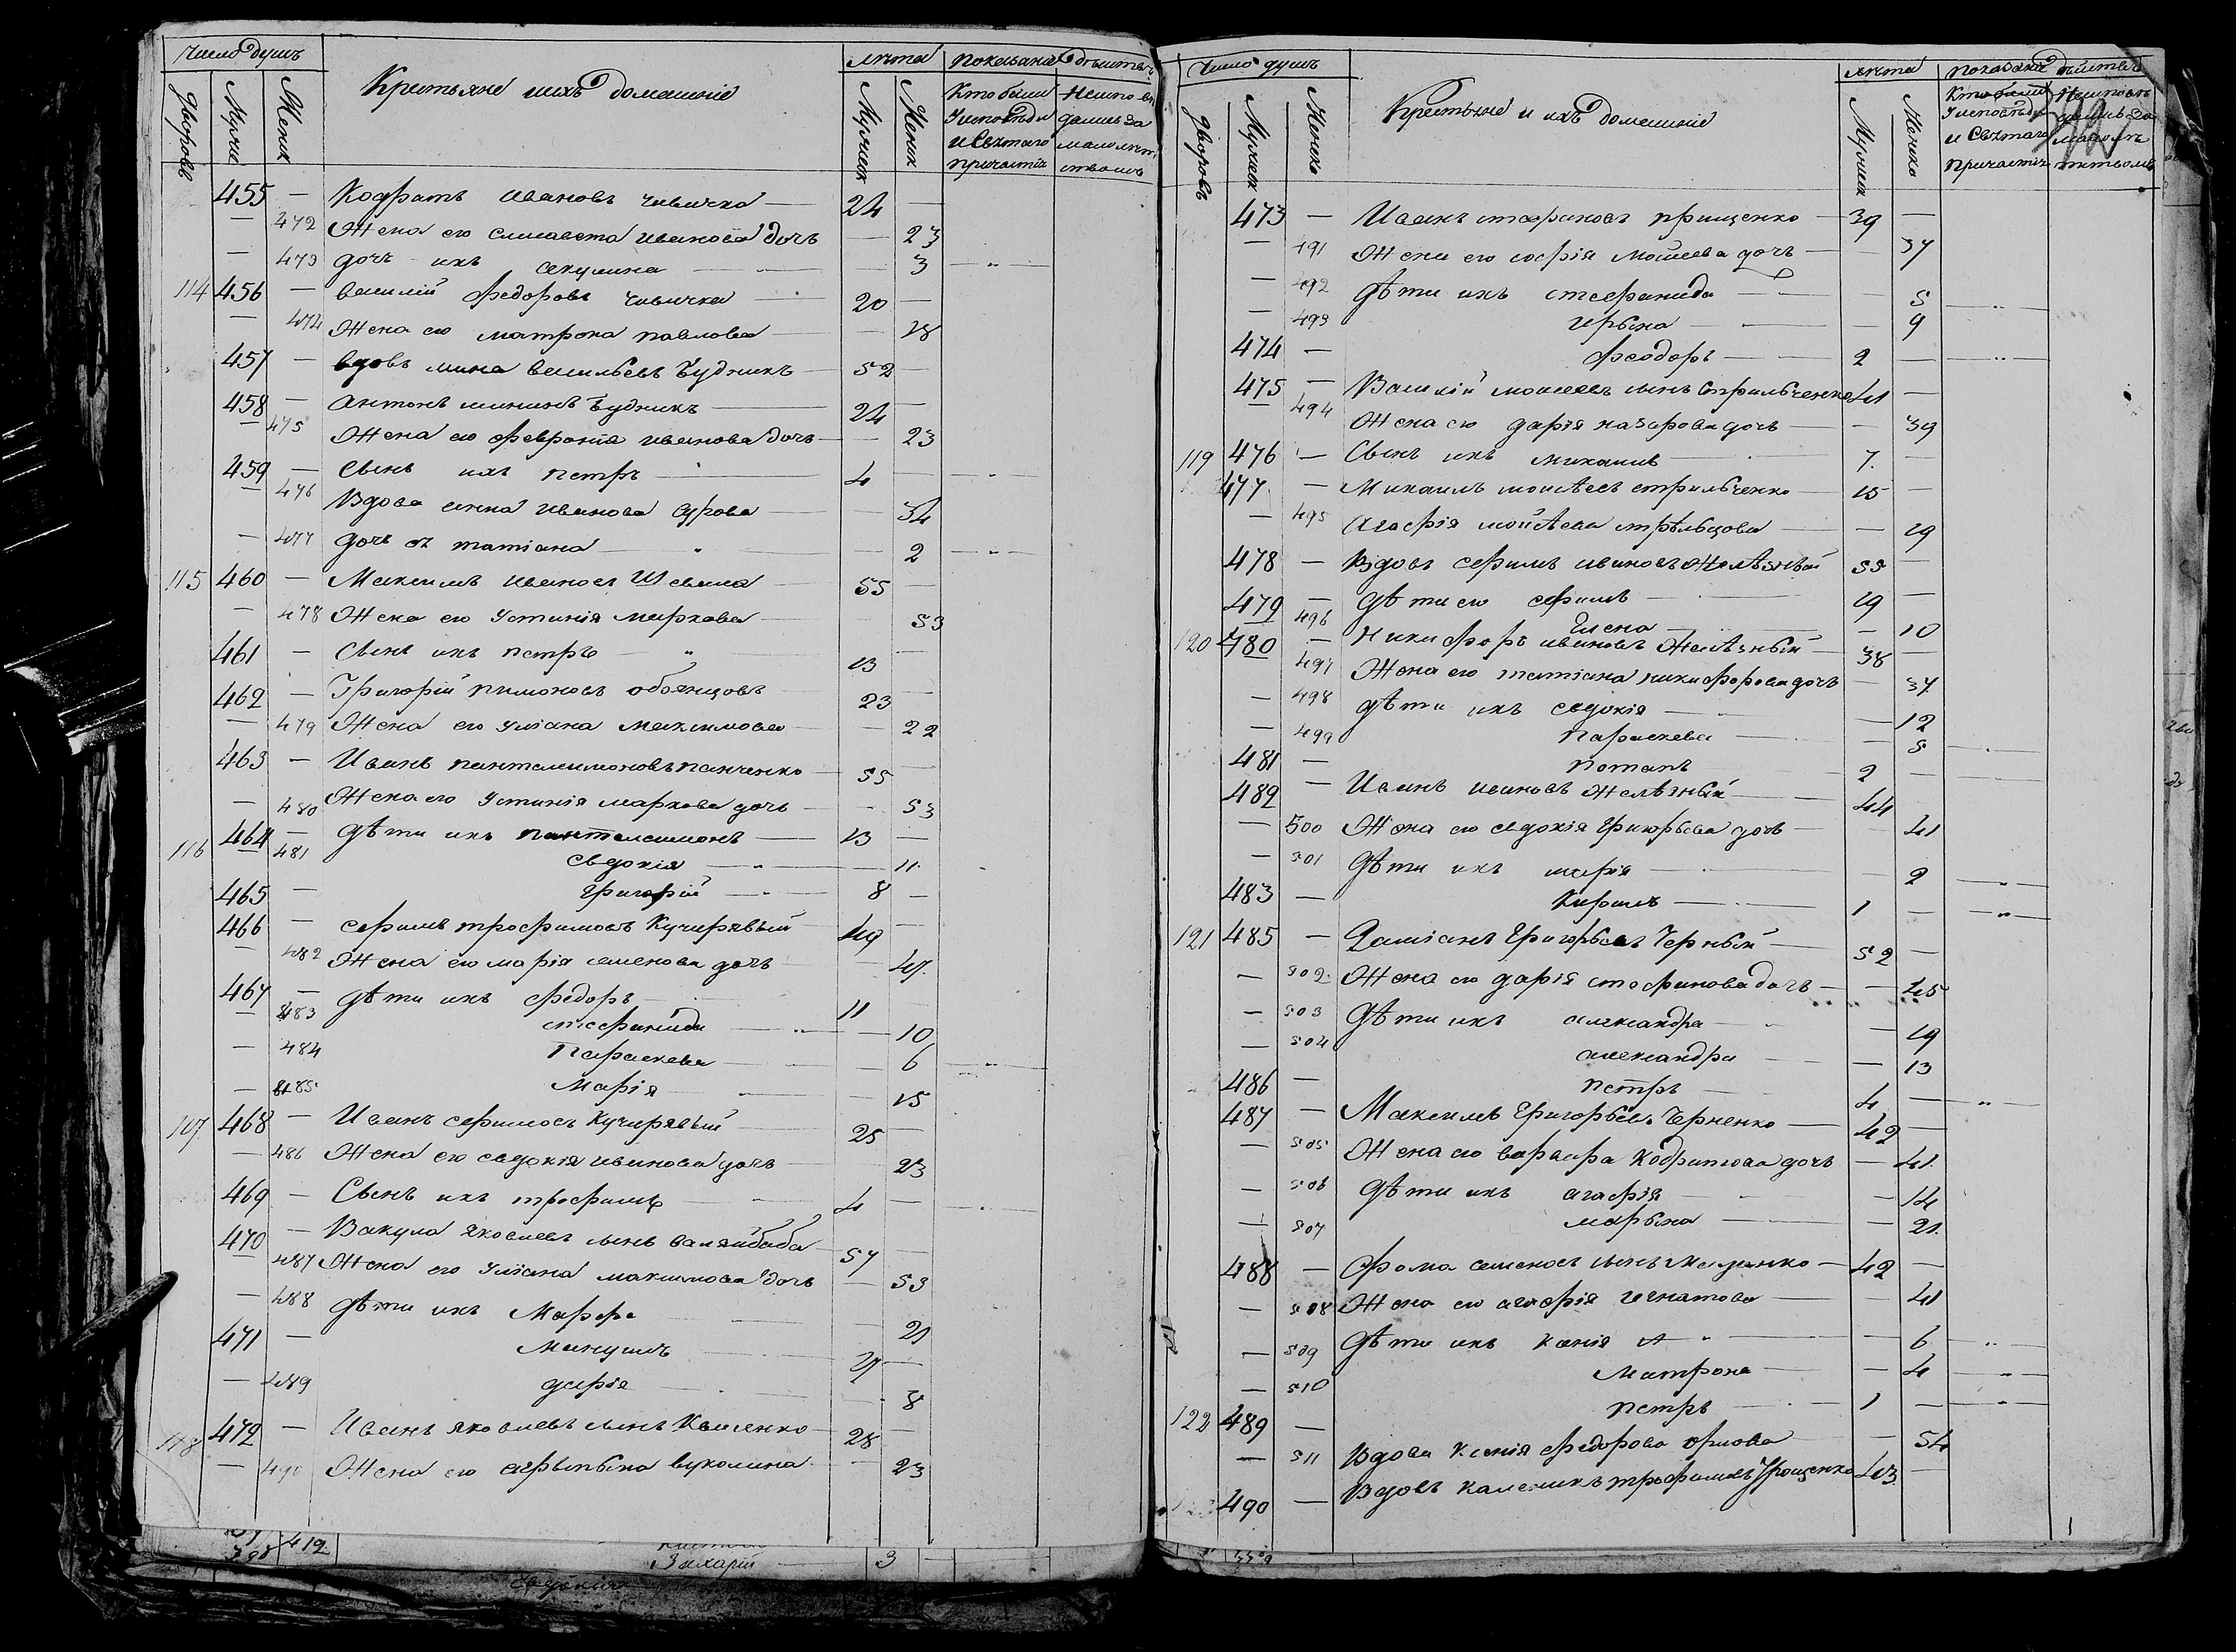 Число душъ
Крестьяне и ихъ домашніе
лѣта
показаніе дѣйств.
дворовъ
Мужие
Женск
Мужеск
Женск
Кто были
Неиспо вѣ
у исповѣди
дались за
и Святаго
малолѣт
причастія
ствомъ
455 — Кодратъ Ивановъ Чивичка — 24 —
472 Жена его Елисавета Иванова дочь — 23
— 473 дочь ихъ Акулина — 3
114 456 — Василій Федоровъ Чивичка — 20 —
— 474 Жена его Матрона Павлова — 18
457 — вдовъ Мина Васильевъ Будникъ — 52 —
458 — Антонъ Мининъ Будникъ — 24 —
— 475 Жена его Февронія Иванова дочь — 23
459 — Сынъ ихъ Петръ — 4 —
— 476 Вдова Анна Иванова — 34
— 477 дочь ея Татіана — 2
115 460 — Максимъ Ивановъ Швыла — 55 —
— 478 Жена его Устинія Маркова — 53
461 — Сынъ ихъ Петръ — 13 —
462 — Григорій Пимоновъ — 23 —
— 479 Жена его Уліана Максимова — 22
463 — Иванъ Пантелимоновъ Панченко — 55 —
— 480 Жена его Устинія Маркова дочь — 53
116 464 — Дѣти ихъ Пантелеимонъ — 13 —
481 Евдокія — 11
465 — Григорій — 8 —
466 — Ефимъ Трофимовъ Кучирявый — 49 —
— 482 Жена его Марія Семенова дочь — 47
467 — Дѣти ихъ Федоръ — 11
— 483 Стефанида — 10
— 484 Параскева — 6
— 485 Марія — 15
107 468 — Иванъ Ефимовъ Кучирявый — 25 —
— 486 Жена его Евдокія Иванова дочь — 23
469 — Сынъ ихъ Трофимъ — 4 —
470 — Вакула Яковлевъ сынъ — 57 —
— 487 Жена его Уліана Максимова дочь — 53
— 488 Дѣти ихъ Марфа — 21
471 — Мануилъ — 21 —
— 489 Дарія — 8
118 472 — Иванъ Яковлевъ сынъ — 28 —
— 490 Жена его Агрыпына Вуколина — 23
412
Захарій — 3 —
Евдокія
Число душъ
Крестьяне и ихъ домашніе
лѣта
показаніе дѣйств
дворовъ
Мужеск
Женска
Мужеск
Женска
Кто были
Неисповѣ
у исповѣди
дались за
и Святаго
малолѣ
причастія
тствомъ
473 — Иванъ Стефановъ Прищенко — 39 —
— 491 Жена его Софія Моисеева дочь — 37
— 492 Дѣти ихъ Стефанида — 5
— 493 Ирына — 9
474 — Феодоръ — 2 —
475 — Василій Моисеевъ сынъ Стрильченко 41 —
494 Жена его Дарія Назарова дочь — 39
119 476 — Сынъ ихъ Михаилъ — 7 —
477 — Михаилъ Моисѣевъ Стрильченко — 15 —
— 495 Агафія Мойсѣева Стрѣльцова — 19
478 — Вдовъ Ефимъ Ивановъ Желѣзный 55 —
479 — Дѣти его Ефимъ — 19 —
496 Елена — 10
120 480 — Никифоръ Ивановъ Желѣзный — 38 —
497 Жена его Татіана Никифорова дочь — 37
— 498 Дѣти ихъ Евдокія — 12
— 499 Параскева — 5
481 — Потапъ — 2 —
482 — Иванъ Ивановъ Желѣзный — 44
— 500 Жена его Евдокія Григорьева дочь — 41
— 501 Дѣти ихъ Марія — 2
483 — Кирилъ — 1 —
121 485 — Даміанъ Григорьевъ Черный — 52 —
— 502 Жена его Дарія Стефанова дочь — 45
— 503 Дѣти ихъ Александра — 19
— 504 Александра — 13
486 — Петръ — 4 —
487 — Максимъ Григорьевъ Черненко — 42 —
— 505 Жена его Варвара Кодратова дочь — 41
— 506 Дѣти ихъ Агафія — 14
— 507 Марына — 21
488 — Фома Семеновъ сынъ — 42 —
— 508 Жена его Агафія Игнатова — 41
— 509 Дѣти ихъ — 6
— 510 Матрона — 4
122 489 — Петръ — 1 —
— 511 Вдова Ксенія Федорова — 54
490 — Вдовъ Каленикъ Трофимовъ 43 —